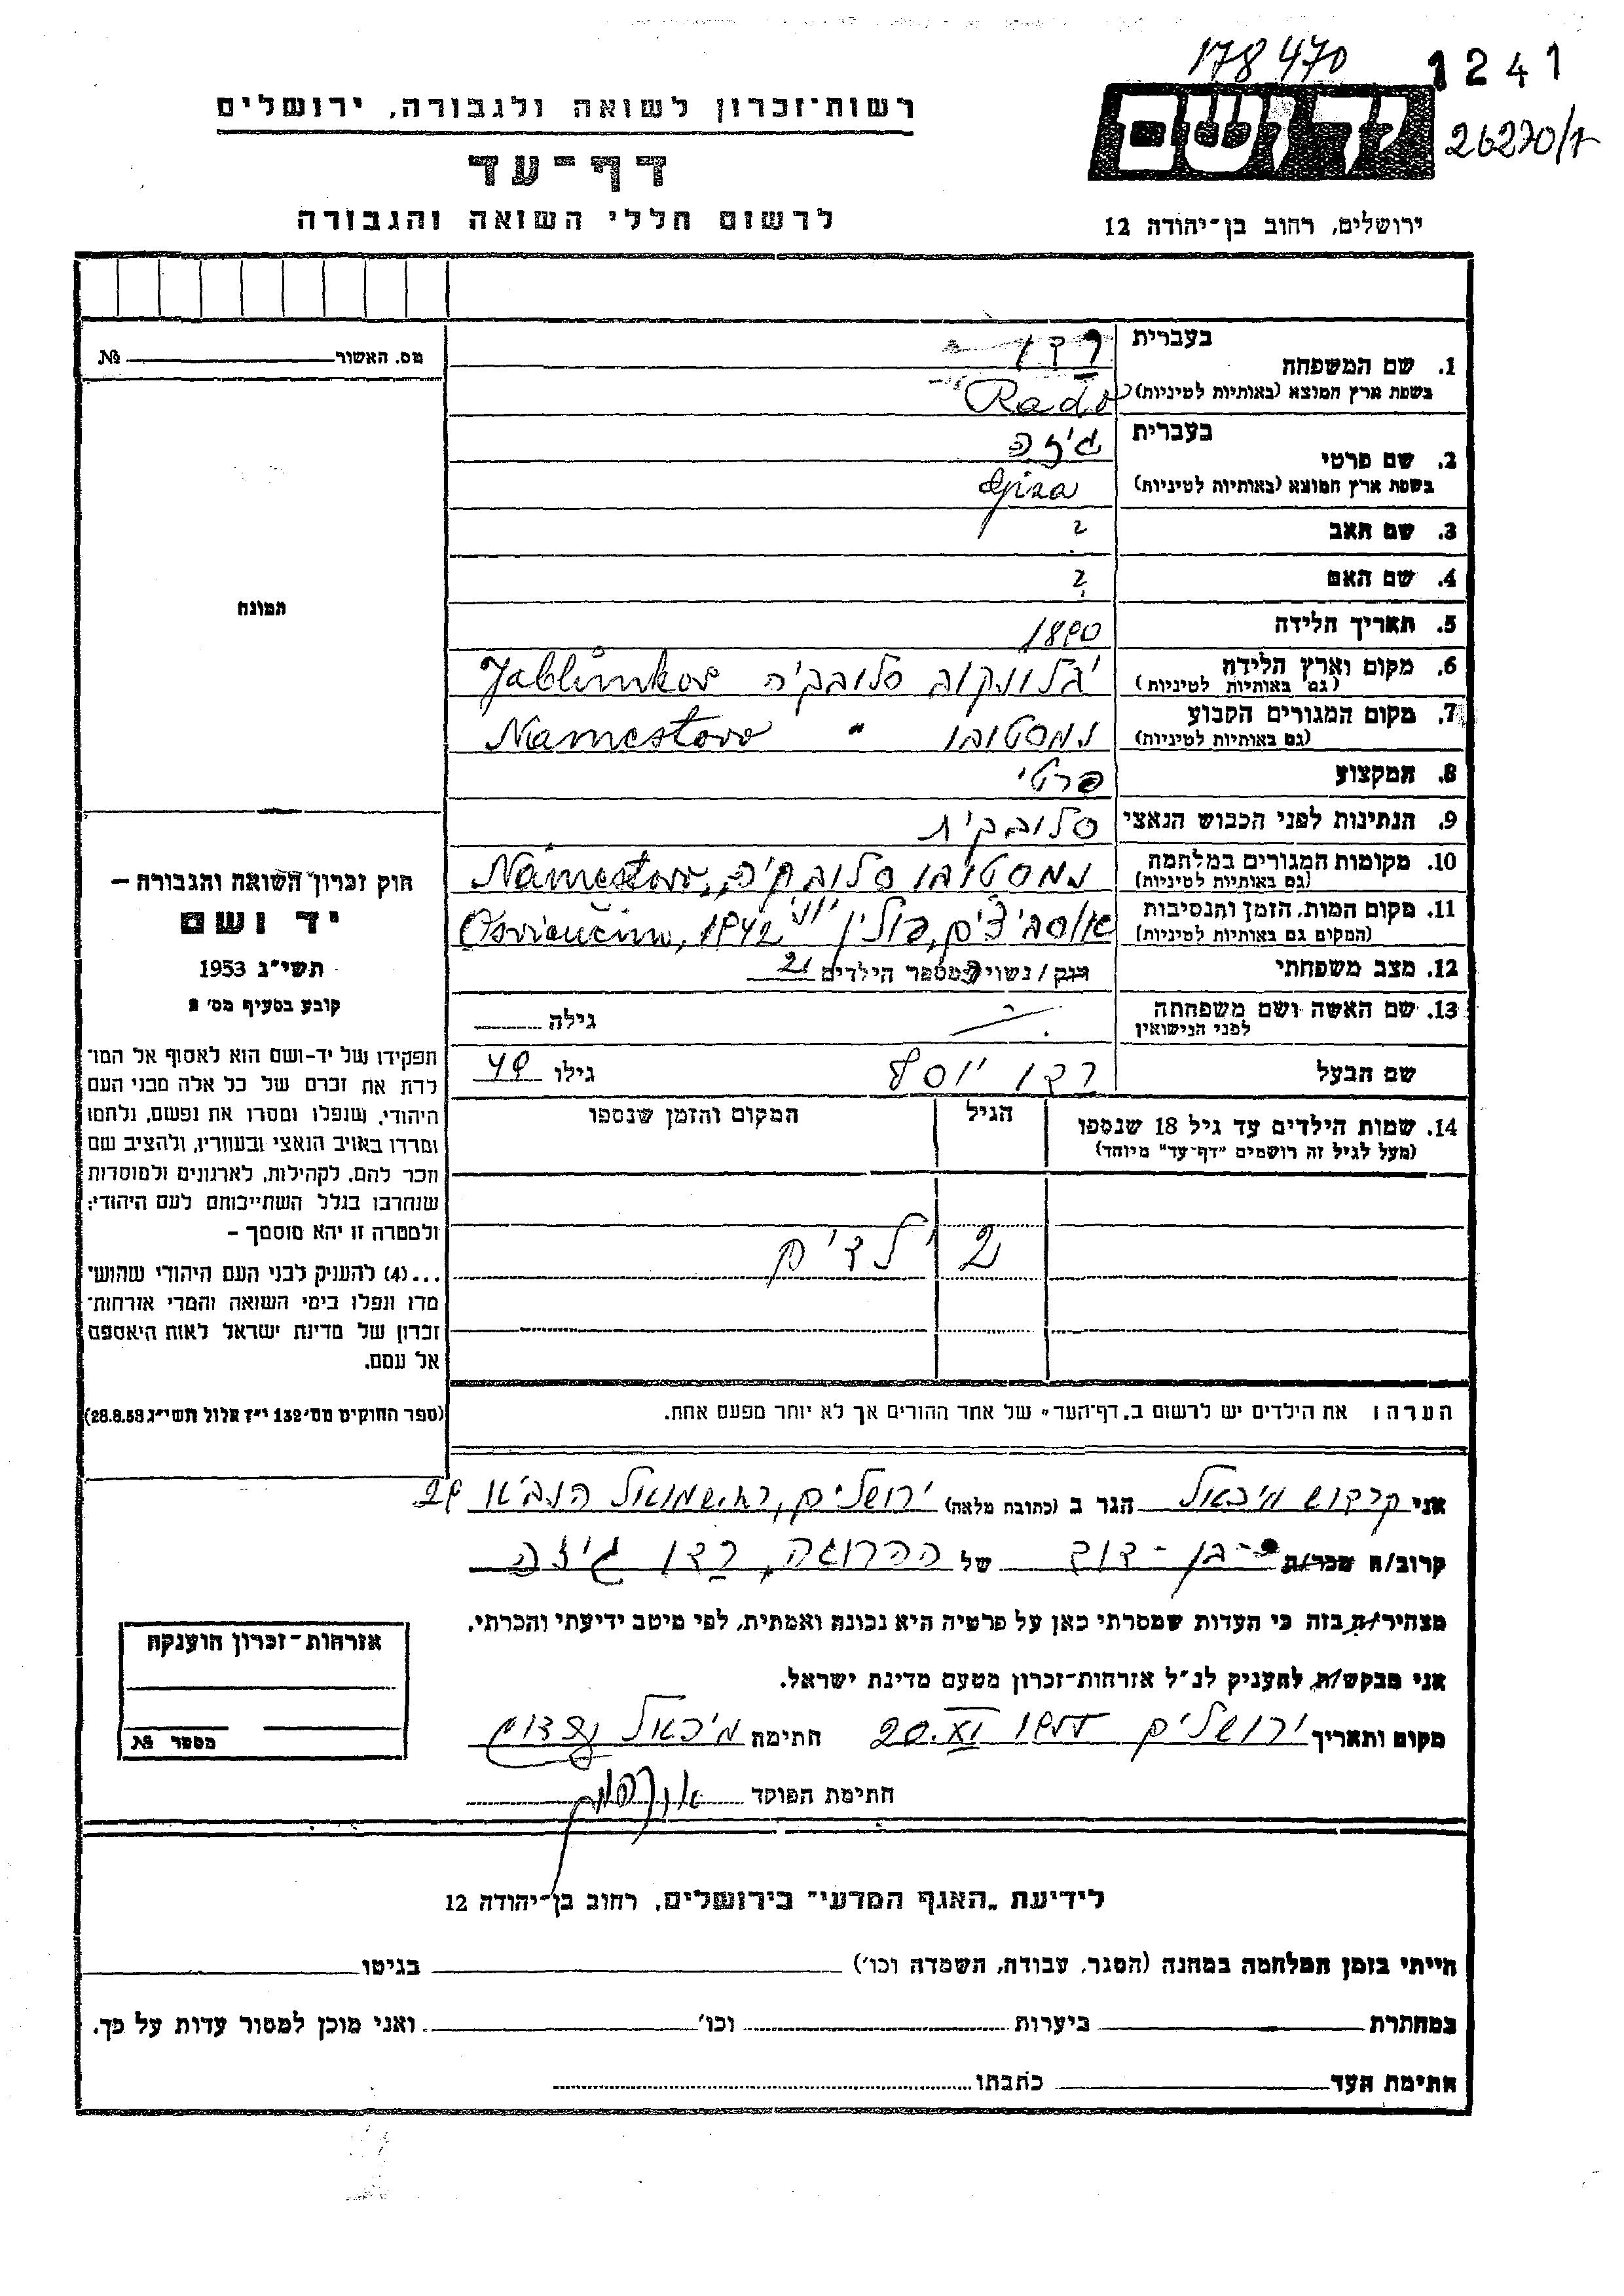 178470
1241
26270/1
יד ושם
ירושלים, רחוב בן־יהודה 12
רשות־זכרון לשואה ולגבורה, ירושלים
דף־עד
לרשום חללי השואה והגבורה
מס. האשור № 
התמונה
חוק זכרון השואה והגבורה –
יד ושם
תשי״ג 1953
קובע בסעיף מס׳ 2
תפקידו של יד-ושם הוא לאסוף אל המו־
לדת את זכרם של כל אלה מבני העם
היהודי, שנפלו ומסרו את נפשם, נלחמו
ומרדו באויב הנאצי ובעוזריו, ולהציב שם
וזכר להם, לקהילות, לארגונים ולמוסדות
שנחרבו בגלל השתייכותם לעם היהודי;
ולמטרה זו יהא מוסמך –
...(4) להעניק לבני העם היהודי שהוש־
מדו ונפלו בימי השואה והמרי אזרחות־
זכרון של מדינת ישראל לאות היאספם
אל עמם.
(ספר החוקים מס׳ 132 י״ז אלול תשי״ג 28.8.53)
בעברית
1. שם המשפחה רדו
בשפת ארץ המוצא (באותיות לטיניות) Rado
בעברית
2. שם פרטי גיזה
בשפת ארץ המוצא (באותיות לטיניות) Giza
3. שם האב ?
4. שם האם ?
5. תאריך הלידה 1890
6. מקום וארץ הלידה יבלונקוב סלובקיה Jablůnkov
(גם באותיות לטיניות)
7. מקום המגורים הקבוע נמסטובו " Namestovo
(גם באותיות לטיניות)
8. המקצוע פרטי
9. הנתינות לפני הכבוש הנאצי סלובקית
10. מקומות המגורים במלחמה נמסטובו סלובקיה, Námestovo
(גם באותיות לטיניות)
11. מקום המות, הזמן והנסיבות פולין 1942
(המקום גם באותיות לטיניות)
12. מצב משפחתי רווק / נשוי ה מספר הילדים 2
13. שם האשה ושם משפחתה גילה
לפני הנישואין
שם הבעל רדו יוסף גילו 49
14. שמות הילדים עד גיל 18 שנספו הגיל המקום והזמן שנספו
(מעל לגיל זה רושמים "דף-עד" מיוחד)
2 ילדים
הערה: את הילדים יש לרשום ב„דף־העד״ של אחד ההורים אך לא יותר מפעם אחת.
אני קרקוש מיכאל הגר ב (כתובת מלאה) ירושלים, רח. שמואל הנביא 29
קרוב/ה מכר/ת בן-דוד של ההרוגה, רדו גיזה
מצהיר/ה בזה כי העדות שמסרתי כאן על פרטיה היא נכונה ואמתית, לפי מיטב ידיעתי והכרתי.
אני מבקש/ת להעניק לנ״ל אזרחות־זכרון מטעם מדינת ישראל.
מקום ותאריך ירושלים 20.XI חתימה מיכאל
חתימת הפוקד
אזרחות־זכרון הוענקה
מספר №
לידיעת „האגף המדעי״ בירושלים, רחוב בן־יהודה 12
הייתי בזמן המלחמה במחנה (הסגר, עבודה, השמדה וכו׳) בגיטו
במחתרת ביערות וכו׳ ואני מוכן למסור עדות על כך.
חתימת העד כתבתו